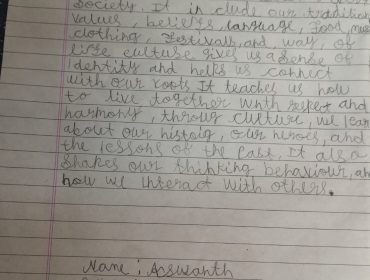 society. It in clude our tradition
values, beliefs, language, food, mus
clothing, festivals, and way of
life culture gives us a sense of
identity and helks us connect
with our roots It teachel us how
to live together with respet and
harmony, throug culture, we lear
about our histoiy, our heroes, and
the lessons of the Past, It also
shakes our thinking behaviour, an
how we interact with others.
Name : Acswanth